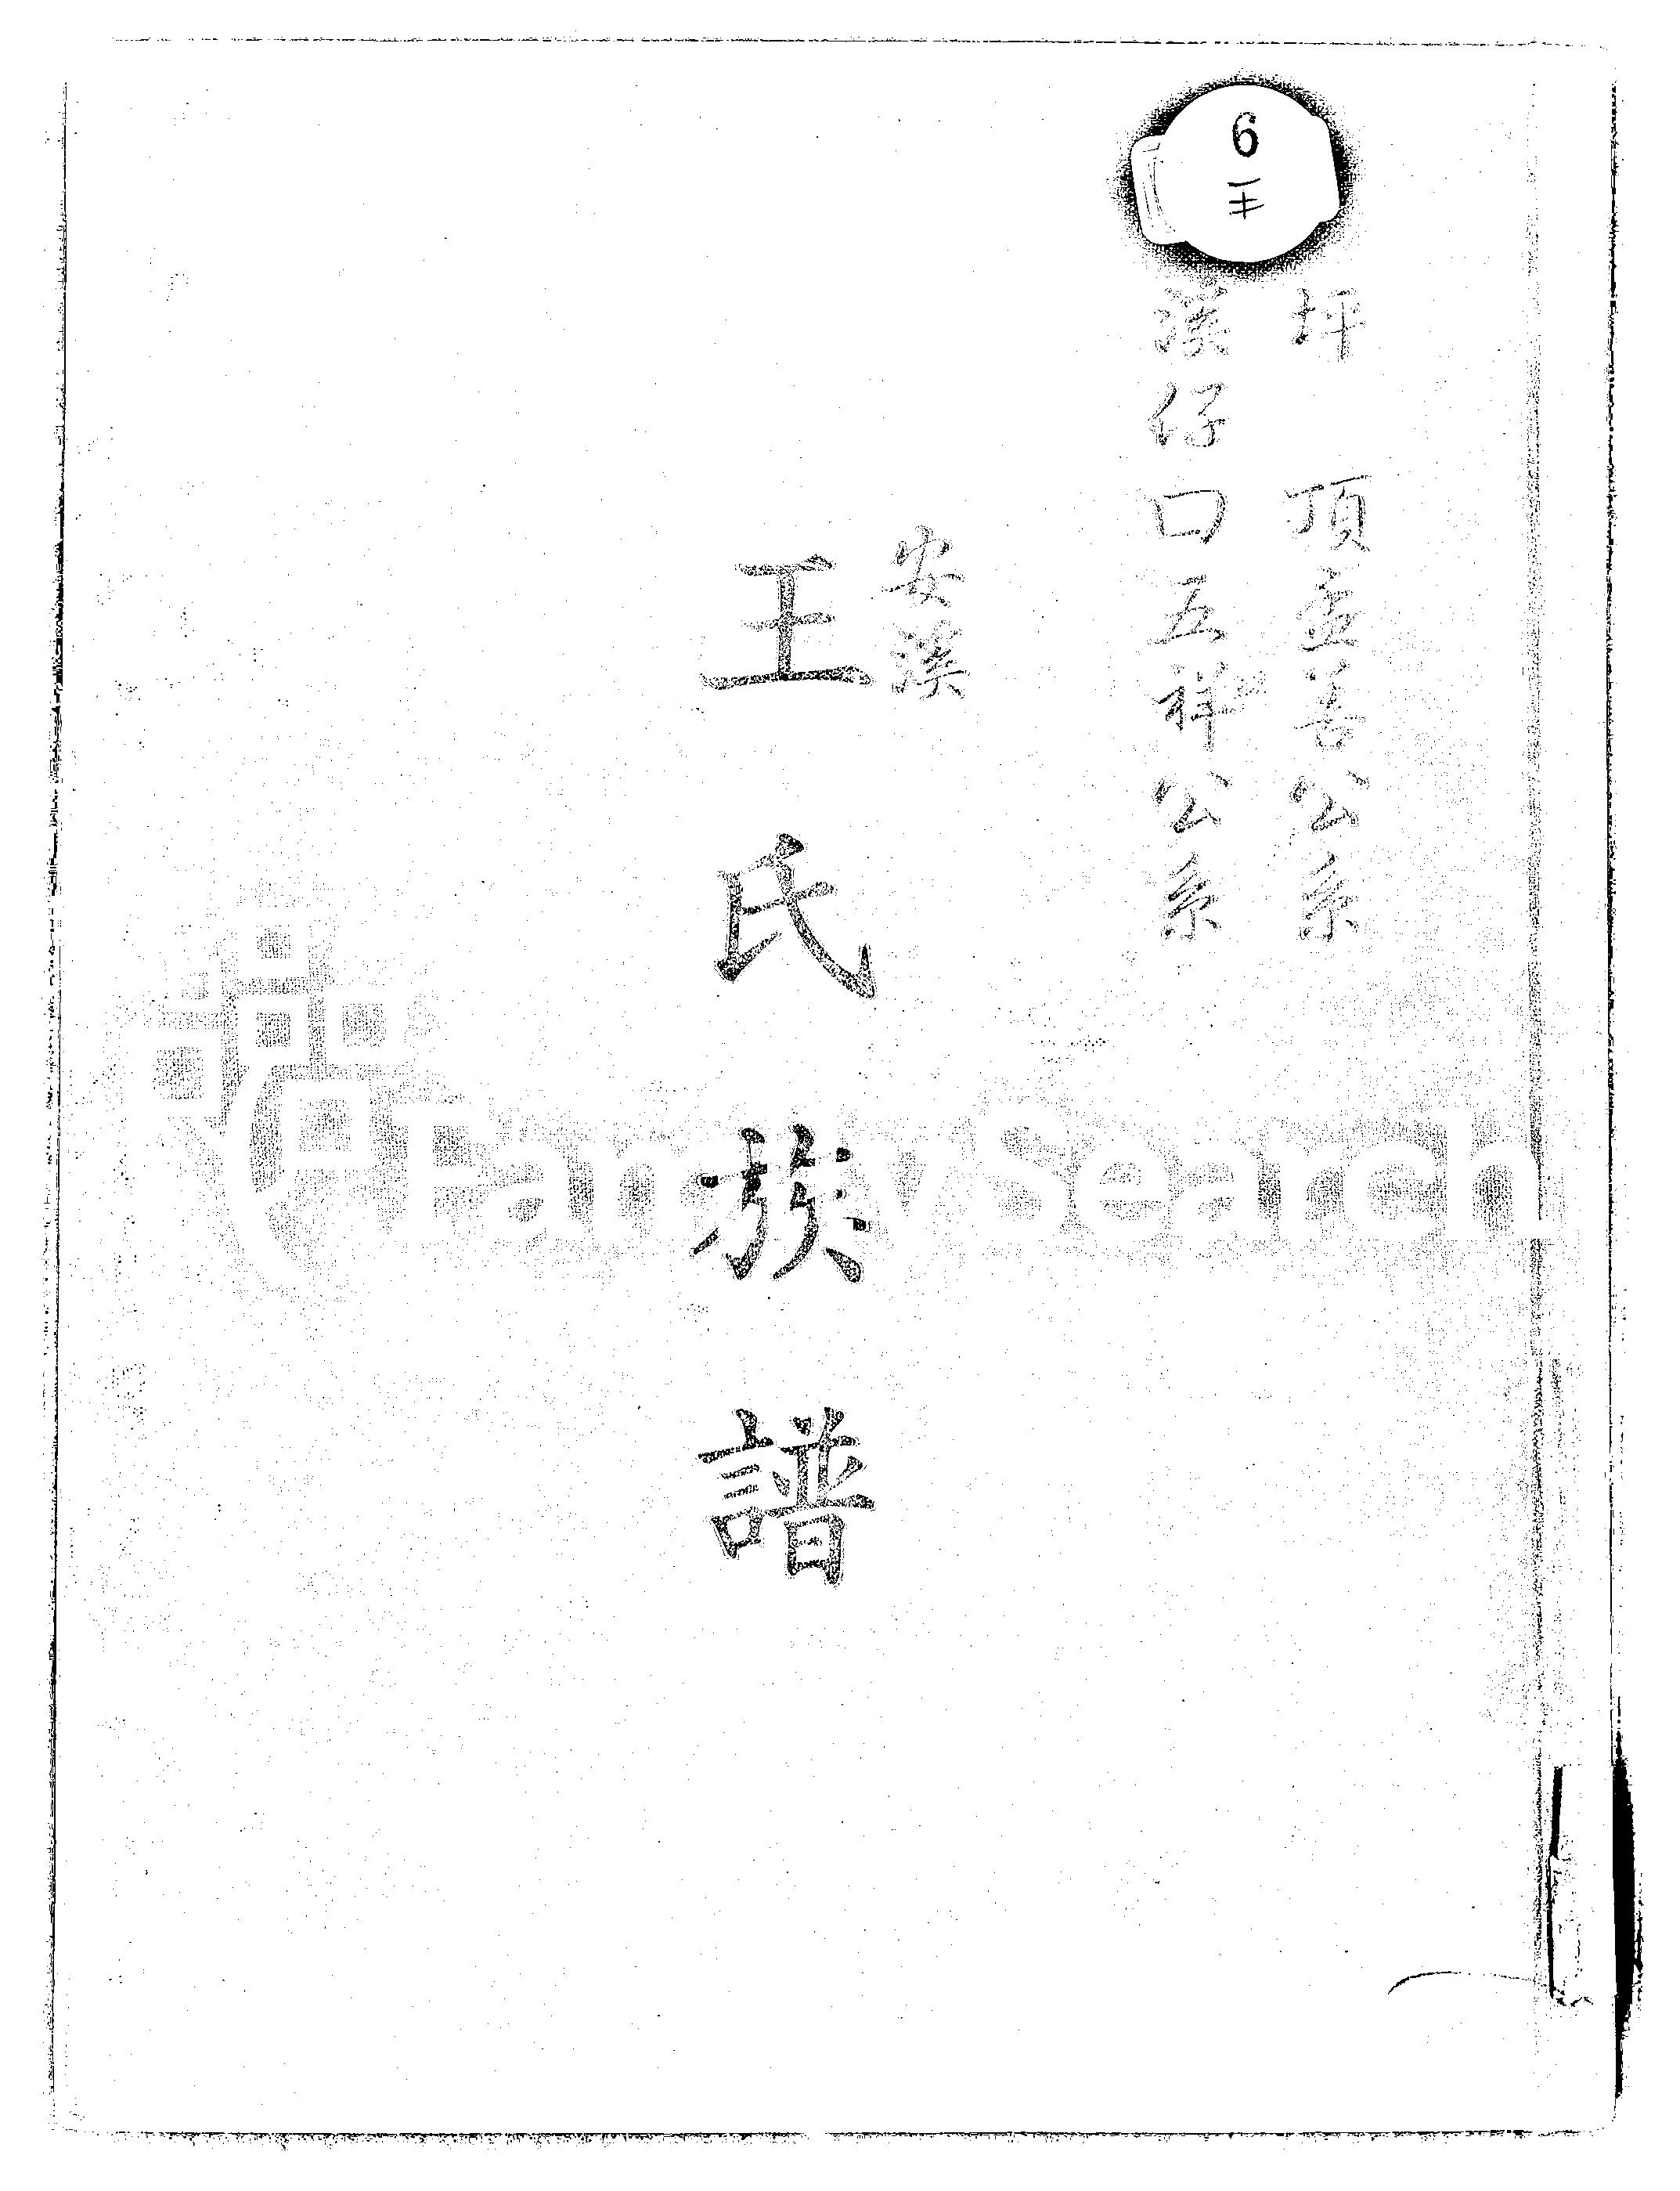 6
王
坪 頂孟善公系
溪仔口五祥公系
安溪
王氏族譜
FamilySearch